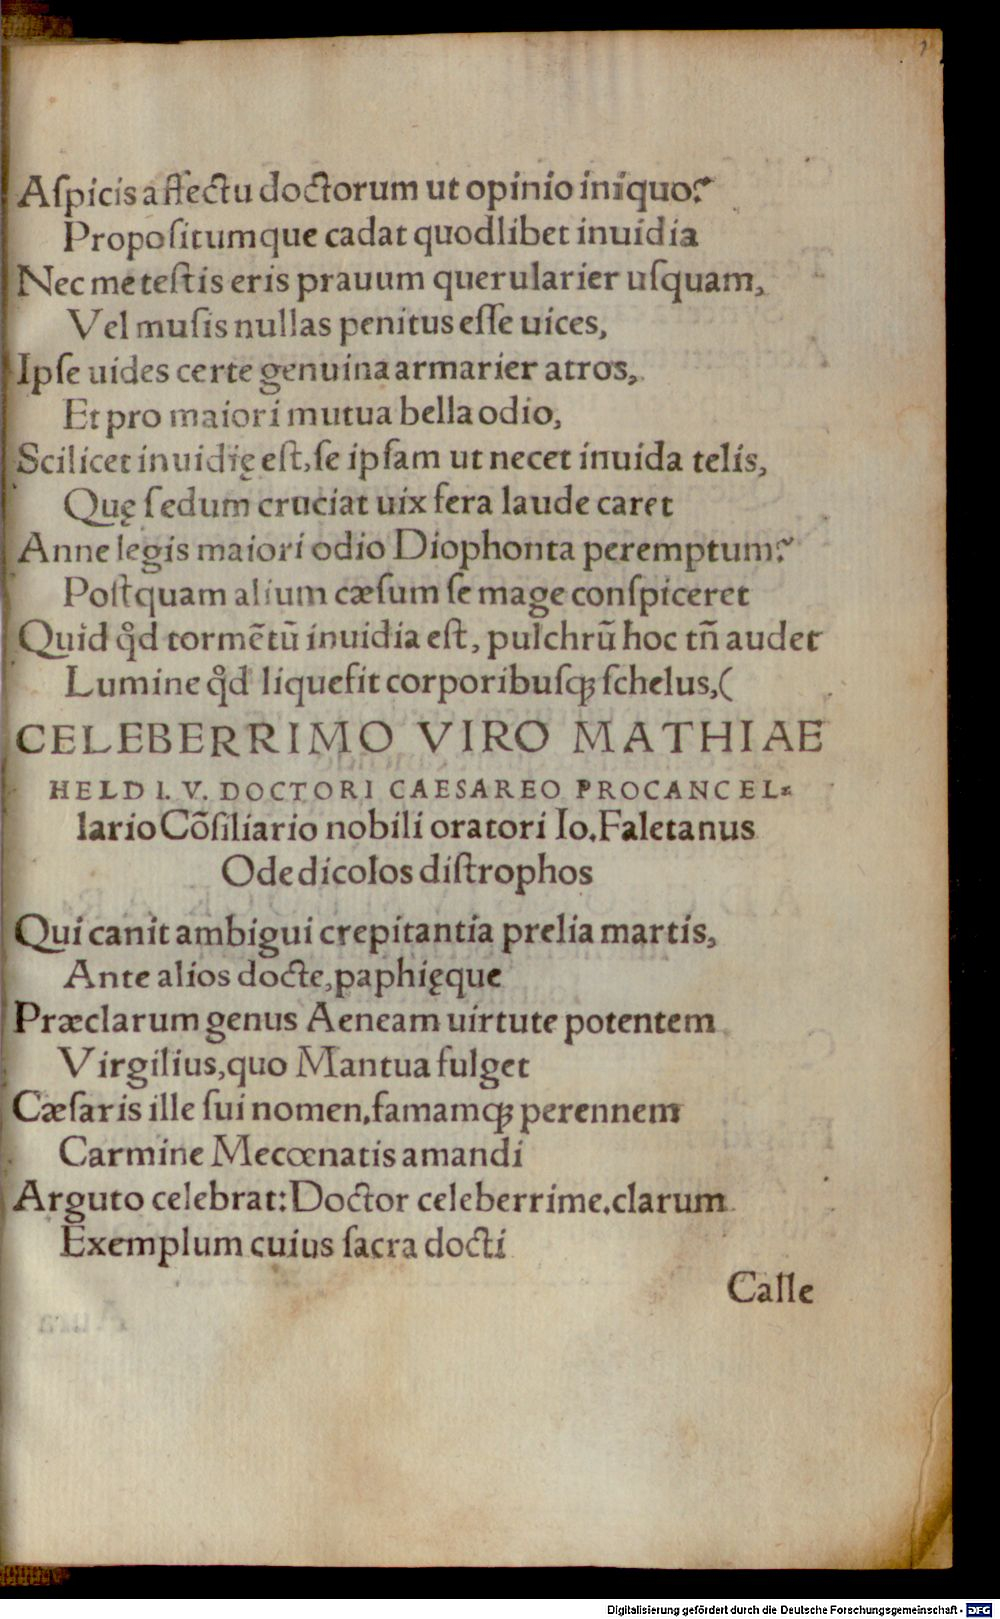 Aſpicis affectu doctorum ut opinio iniquo?
Propoſitumque cadat quodlibet inuidia
Nec me teſtis eris prauum querularier uſquam,
Vel muſis nullas penitus eſſe uices,
Ipſe uides certe genuina armarier atros,
Et pro maiori mutua bella odio,
Scilicet inuidię eſt, ſe ipſam ut necet inuida telis,
Quę ſedum cruciat uix fera laude caret
Anne legis maiori odio Diophonta peremptum?
Poſtquam alium cæſum ſe mage conſpiceret
Quid qͦd tormētū inuidia eſt, pulchrū hoc tñ audet
Lumine qͦd liquefit corporibuſqꝫ ſchelus,(
CELEBERRIMO VIRO MATHIAE
HELD I. V. DOCTORI CAESAREO PROCANCEL⸗
lario Cōſiliario nobili oratori Io. Faletanus
Ode dicolos diſtrophos
Qui canit ambigui crepitantia prelia martis,
Ante alios docte, paphięque
Præclarum genus Aeneam uirtute potentem
Virgilius, quo Mantua fulget
Cæſaris ille ſui nomen, famamqꝫ perennem
Carmine Mecœnatis amandi
Arguto celebrat: Doctor celeberrime. clarum
Exemplum cuius ſacra docti
Calle
Digitalisierung gefördert durch die Deutsche Forschungsgemeinschaft - DFG